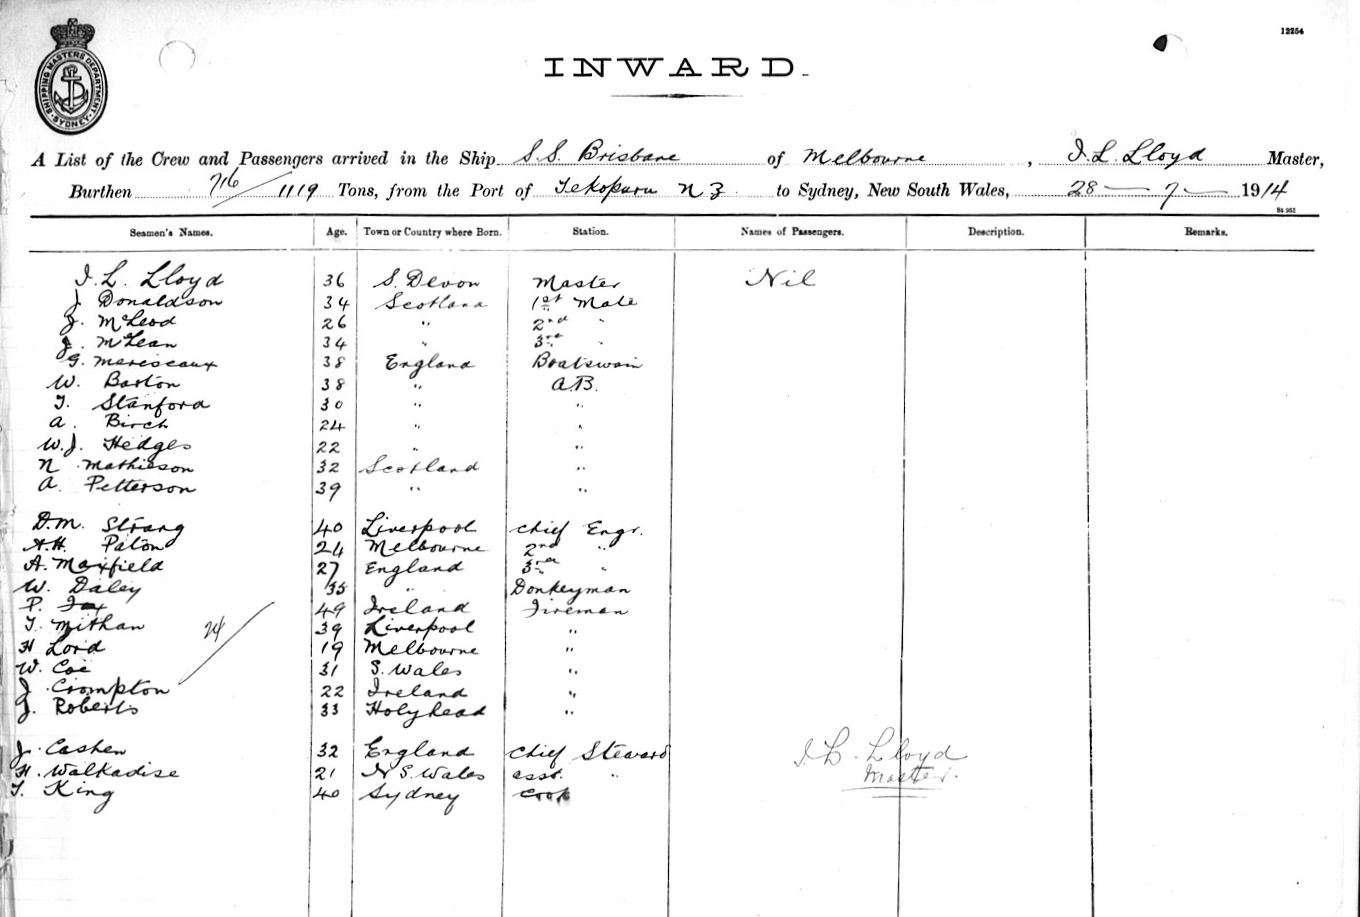 12254
SHIPPING MASTERS DEPARTMENT SYDNEY
INWARD.
A List of the Crew and Passengers arrived in the Ship S.S. Brisbane of Melbourne, I. L. Lloyd Master,
Burthen 716/1119 Tons, from the Port of Tekopuru N Z to Sydney, New South Wales, 28 — 7 — 1914
St 952
Seamen's Names. Age. Town or Country where Born. Station. Names of Passengers. Description. Remarks.
I. L. Lloyd 36 S. Devon Master Nil
J. Donaldson 34 Scotland 1st Mate
J. McLeod 26 " 2nd "
J. McLean 34 " 3rd "
G. Mareseaux 38 England Boatswain
W. Barton 38 " A.B.
T. Stanford 30 " "
A. Birch 24 " "
W. J. Hedges 22 " "
N Mathieson 32 Scotland "
A. Petterson 39 " "
D. M. Strang 40 Liverpool Chief Engr.
A. H. Paton 24 Melbourne 2nd "
A. Maxfield 27 England 3rd "
W. Daley 35 " Donkeyman
P. Fox 49 Ireland Fireman
T. Mithan 39 Liverpool "
24
H Lord 19 Melbourne "
W. Coe 31 S. Wales "
J. Crompton 22 Ireland "
J. Roberts 33 Holyhead "
J. Cashen 32 England Chief Steward
H. Walkadise 21 N S. Wales asst. "
T. King 40 Sydney Cook
I. L. Lloyd
Master.